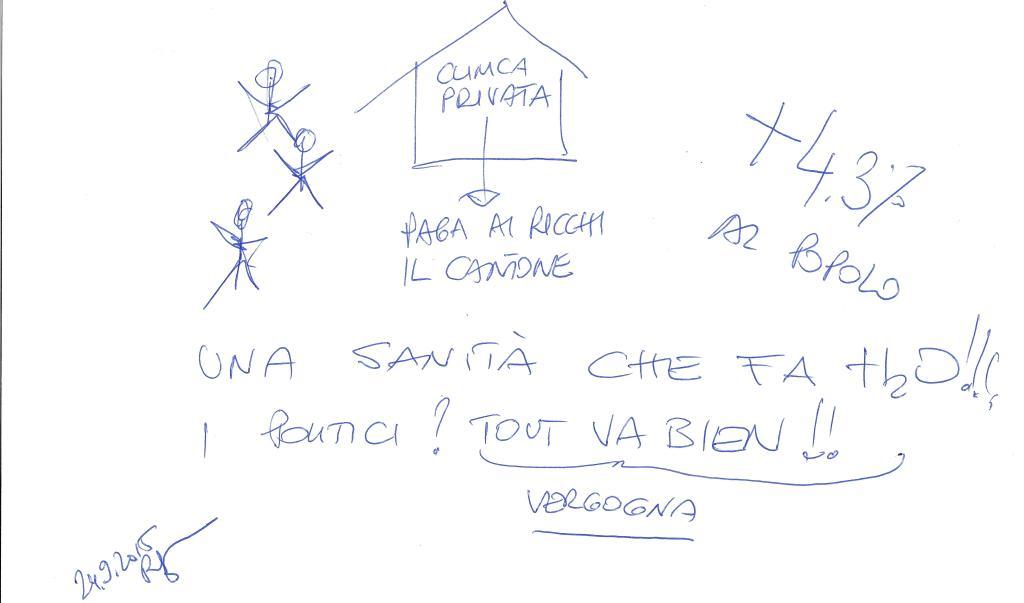 CLINICA
PRIVATA
PAGA AI RICCHI
IL CANTONE
+4.3%
AL POPOLO
UNA SANITÀ CHE FA H2O!!!
I POLITICI? TOUT VA BIEN!!
VERGOGNA
24.9.2015